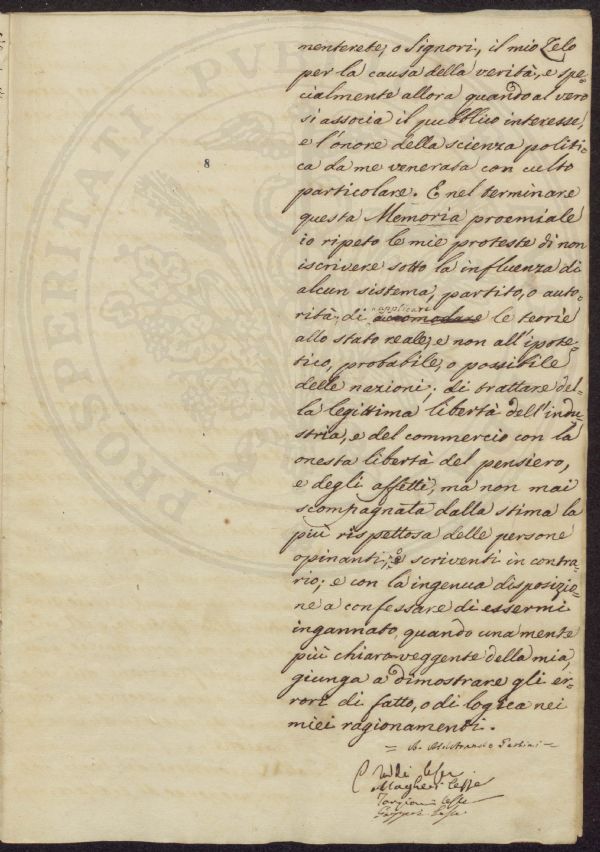 menterete, o Signori, il mio Zelo
per la causa della verità, e spe-
cialmente allora quando al vero
si associa il pubblico interesse,
e l'onore della scienza politi-
ca da me venerata con culto
particolare. E nel terminare
questa Memoria proemiale
io ripeto le mie proteste di non
iscrivere sotto la influenza di
alcun sistema, partito, o auto-
rità; di applicare accomodare le teorie
allo stato reale, e non all'ipote-
tico, probabile, o possibile
delle nazioni; di trattare del-
la legittima libertà dell'indu-
stria, e del commercio con la
onesta libertà del pensiero,
e degli affetti, ma non mai
scompagnata dalla stima la
più rispettosa delle persone
opinanti, o scriventi in contra-
rio; e con la ingenua disposizio-
ne a confessare di essermi
ingannato, quando una mente
più chiaro-veggente della mia,
giunga a dimostrare gli er-
rori di fatto, o di logica nei
miei ragionamenti.
8
PROSPERITATI PUBL